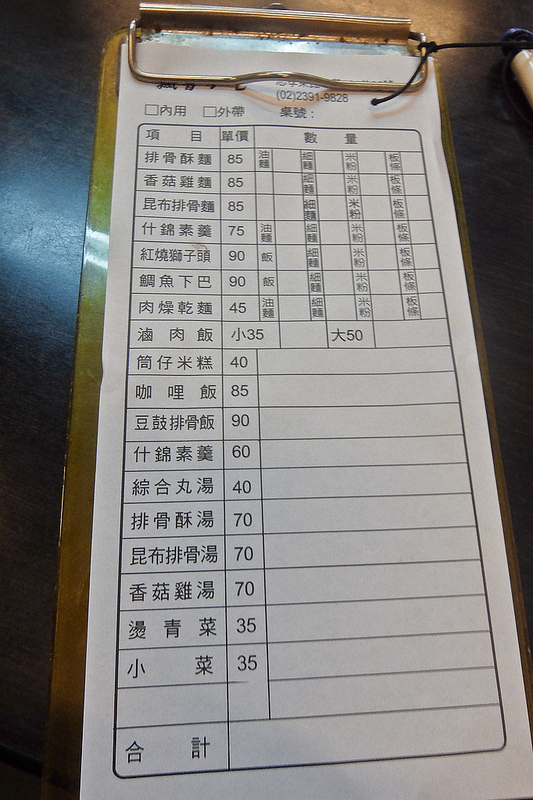 (02)2391-9828
□內用 □外帶 桌號：
項目 單價 數量
排骨酥麵 85 油麵 細麵 米粉 板條
香菇雞麵 85 細麵 米粉 板條
昆布排骨麵 85 細麵 米粉 板條
什錦素羹 75 油麵 細麵 米粉 板條
紅燒獅子頭 90 飯 細麵 米粉 板條
鯛魚下巴 90 飯 細麵 米粉 板條
肉燥乾麵 45 油麵 細麵 米粉 板條
滷肉飯 小35 大50
筒仔米糕 40
咖哩飯 85
豆鼓排骨飯 90
什錦素羹 60
綜合丸湯 40
排骨酥湯 70
昆布排骨湯 70
香菇雞湯 70
燙青菜 35
小菜 35
合計